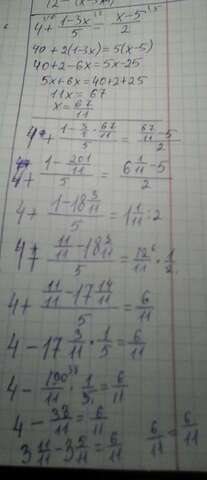 12 - (x-3x)
4 + 1-3x/5 = x-5/2
40 + 2(1-3x) = 5(x-5)
40+2-6x = 5x-25
5x+6x = 40+2+25
11x = 67
x = 67/11
4 + (1 - 3/1 · 67/11)/5 = (67/11 - 5)/2
4 + (1 - 201/11)/5 = (6 1/11 - 5)/2
4 + (1 - 18 3/11)/5 = 1 1/11 : 2
4 + (11/11 - 18 3/11)/5 = 12/11 · 1/2
4 + (11/11 - 17 14/11)/5 = 6/11
4 - 17 3/11 · 1/5 = 6/11
4 - 190/11 · 1/5 = 6/11
4 - 38/11 = 6/11
3 11/11 - 3 5/11 = 6/11 6/11 = 6/11